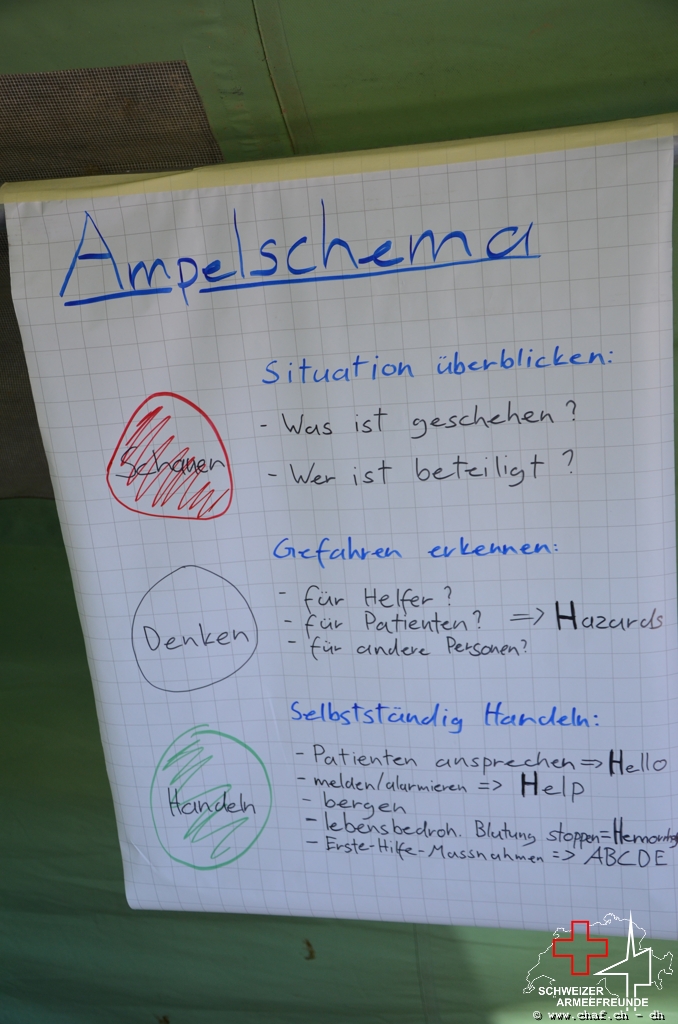 Ampelschema
Situation überblicken:
Schauen
- Was ist geschehen?
- Wer ist beteiligt?
Gefahren erkennen:
Denken
- für Helfer?
- für Patienten? => Hazards
- für andere Personen?
Selbstständig Handeln:
Handeln
- Patienten ansprechen => Hello
- melden/alarmieren => Help
- bergen
- lebensbedroh. Blutung stoppen =
- Erste-Hilfe-Massnahmen => ABCDE
SCHWEIZER
ARMEEFREUNDE
© www.chaf.ch - dh